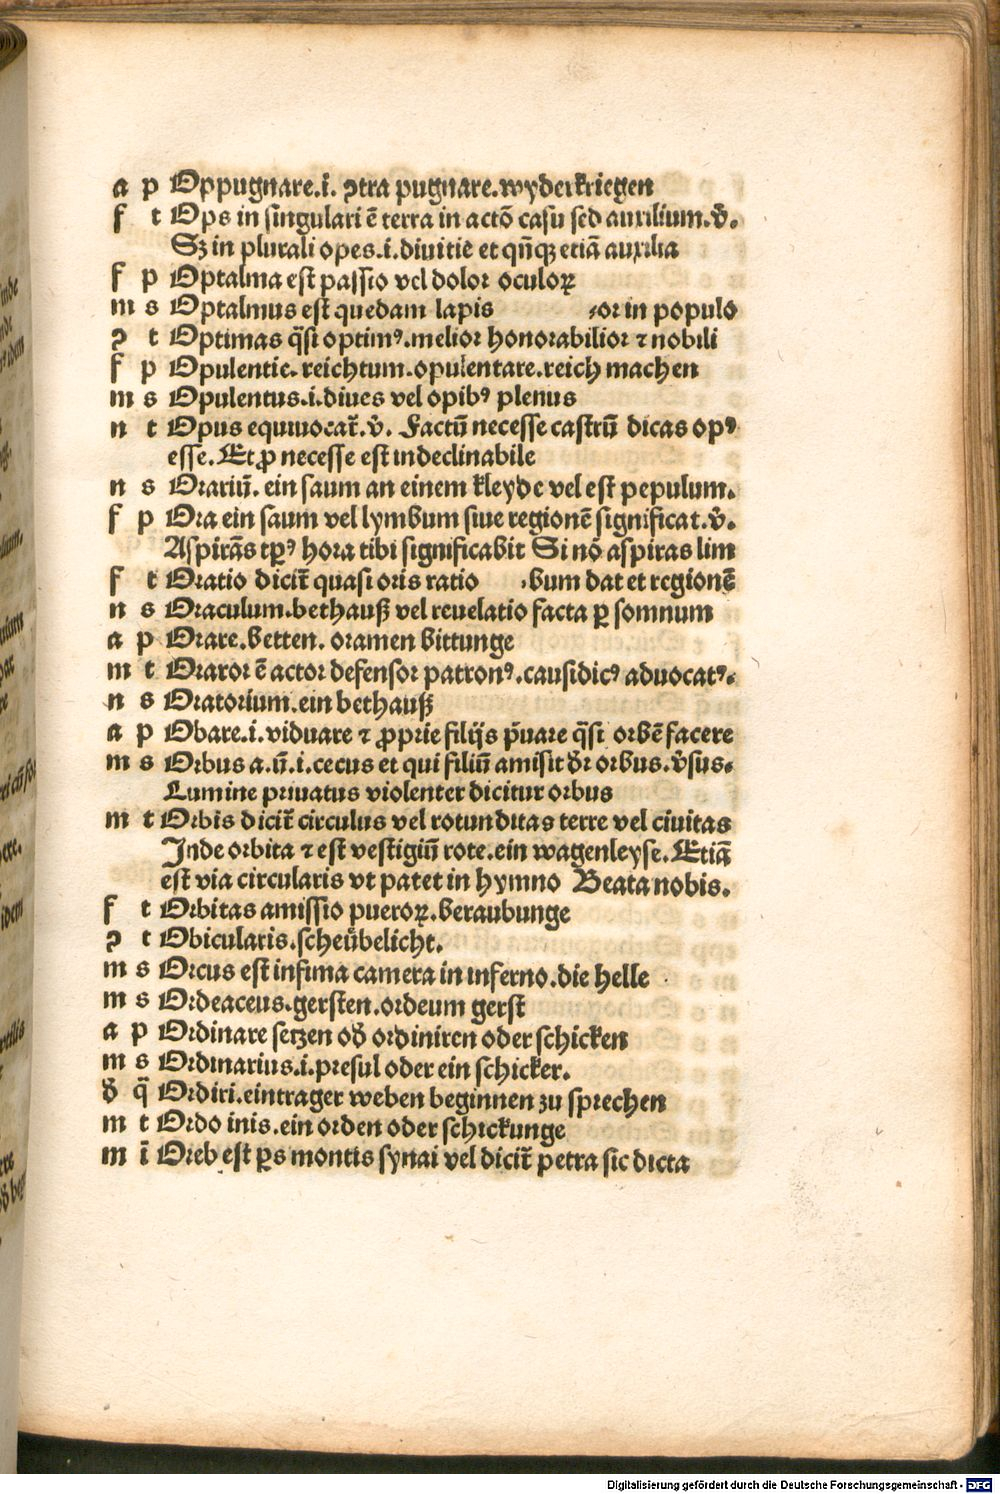 a p Oppugnare.i. ꝯtra pugnare.wyderkriegen
f t Ops in singulari ē terra in actō casu sed auxilium.v̄.
Sz in plurali opes.i.diuitie et qn̄qꝫ etiā auxilia
f p Optalma est passio vel dolor oculoꝝ
m s Optalmus est quedam lapis ⸗or in populo
ꝯ t Optimas q̄si optimꝰ.melior honorabilior ⁊ nobili
f p Opulentie. reichtum.opulentare.reich machen
m s Opulentus.i.diues vel opibꝰ plenus
n t Opus equiuocat̄.v̄. Factū necesse castrū dicas opꝰ
esse.Et ꝓ necesse est indeclinabile
n s Orariū. ein saum an einem kleyde vel est pepulum.
f p Ora ein saum vel lymbum siue regionē significat.v̄.
Aspirās tꝑꝰ hora tibi significabit Si nō aspiras lim
f t Oratio dicit̄ quasi oris ratio ⸗bum dat et regionē
n s Oraculum.bethauß vel reuelatio facta ꝑ somnum
a p Orare.betten. oramen bittunge
m t Oraror ē actor defensor patronꝰ.causidicꝰ aduocatꝰ.
n s Oratorium.ein bethauß
a p Obare.i.viduare ⁊ ꝓprie filijs p̄uare q̄si orbē facere
m s Orbus a.ū.i.cecus et qui filiū amisit dr̄ orbus.v̄sus.
Lumine priuatus violenter dicitur orbus
m t Orbis dicit̄ circulus vel rotunditas terre vel ciuitas
Inde orbita ⁊ est vestigiū rote.ein wagenleyse.Etiā
est via circularis vt patet in hymno Beata nobis.
f t Orbitas amissio pueroꝝ.beraubunge
ꝯ t Obicularis.scheübelicht.
m s Orcus est infima camera in inferno.die helle
m s Ordeaceus.gersten.ordeum gerst
a p Ordinare setzen od̄ ordiniren oder schicken
m s Ordinarius.i.presul oder ein schicker.
d̄ q̄ Ordiri.eintrager weben beginnen zu sprechen
m t Ordo inis.ein orden oder schickunge
m ī Oreb est ꝑs montis synai vel dicit̄ petra sic dicta
Digitalisierung gefördert durch die Deutsche Forschungsgemeinschaft - DFG